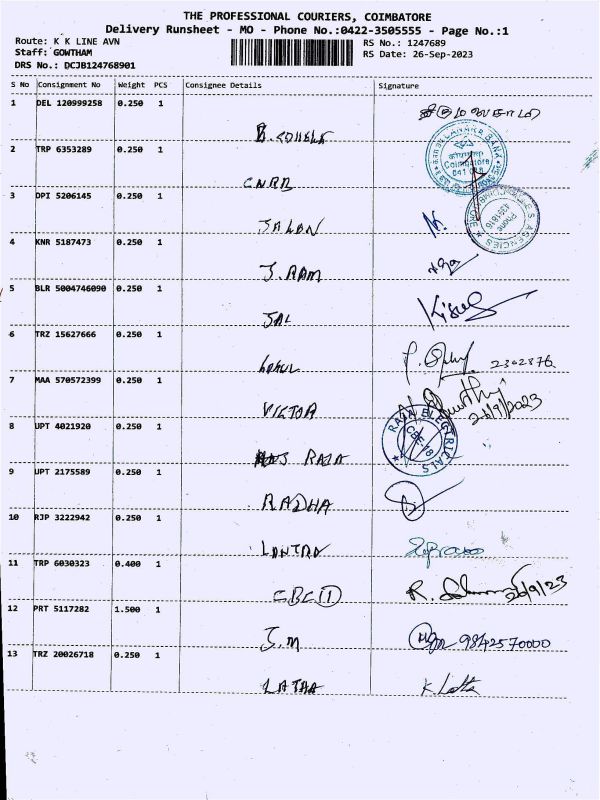 THE PROFESSIONAL COURIERS, COIMBATORE
Delivery Runsheet - MO - Phone No.:0422-3505555 - Page No.:1
Route: K K LINE AVN
RS No.: 1247689
Staff: GOWTHAM
RS Date: 26-Sep-2023
DRS No.: DCJB124768901
S No Consignment No Weight PCS Consignee Details Signature
1 DEL 120999258 0.250 1
2 TRP 6353289 0.250 1
CNRB
CANARA BANK
Coimbatore
3 DPI 5206145 0.250 1
JALAN
AGENCIES
Phone
4 KNR 5187473 0.250 1
J. RAM
5 BLR 5004746090 0.250 1
JAL
6 TRZ 15627666 0.250 1
2302876
7 MAA 570572399 0.250 1
VICTOR
26/9/2023
8 UPT 4021920 0.250 1
RAJA
RAJA ELECTRICALS
CBE-18
9 UPT 2175589 0.250 1
RADHA
10 RJP 3222942 0.250 1
11 TRP 6030323 0.400 1
26/9/23
12 PRT 5117282 1.500 1
J.M 9842570000
13 TRZ 20026718 0.250 1
LATHA K Latha